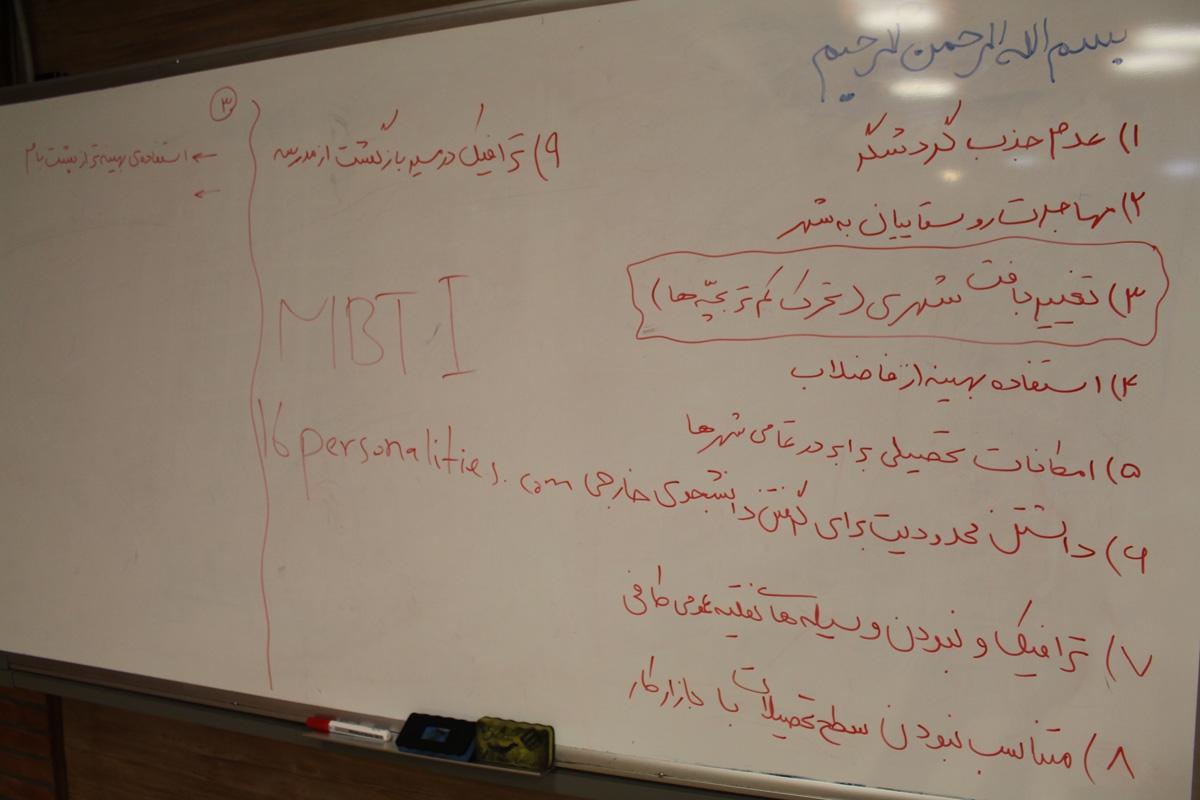 بسم الله الرحمن الرحیم
۱) عدم جذب گردشگر
۲) مهاجرت روستاییان به شهر
۳) تغییر بافت شهری (تحرک کم تر بچّه ها)
۴) استفاده بهینه از فاضلاب
۵) امکانات تحصیلی برابر در تمامی شهرها
۶) داشتن محدودیت برای گرفتن دانشجوی خارجی
۷) ترافیک و نبودن وسیله های نقلیه عمومی کافی
۸) متناسب نبودن سطح تحصیلات با بازار کار
۹) ترافیک در مسیر بازگشت از مدرسه
MBTI
16personalities.com
۳
← استفاده‌ی بهینه تر از پشت بام
←